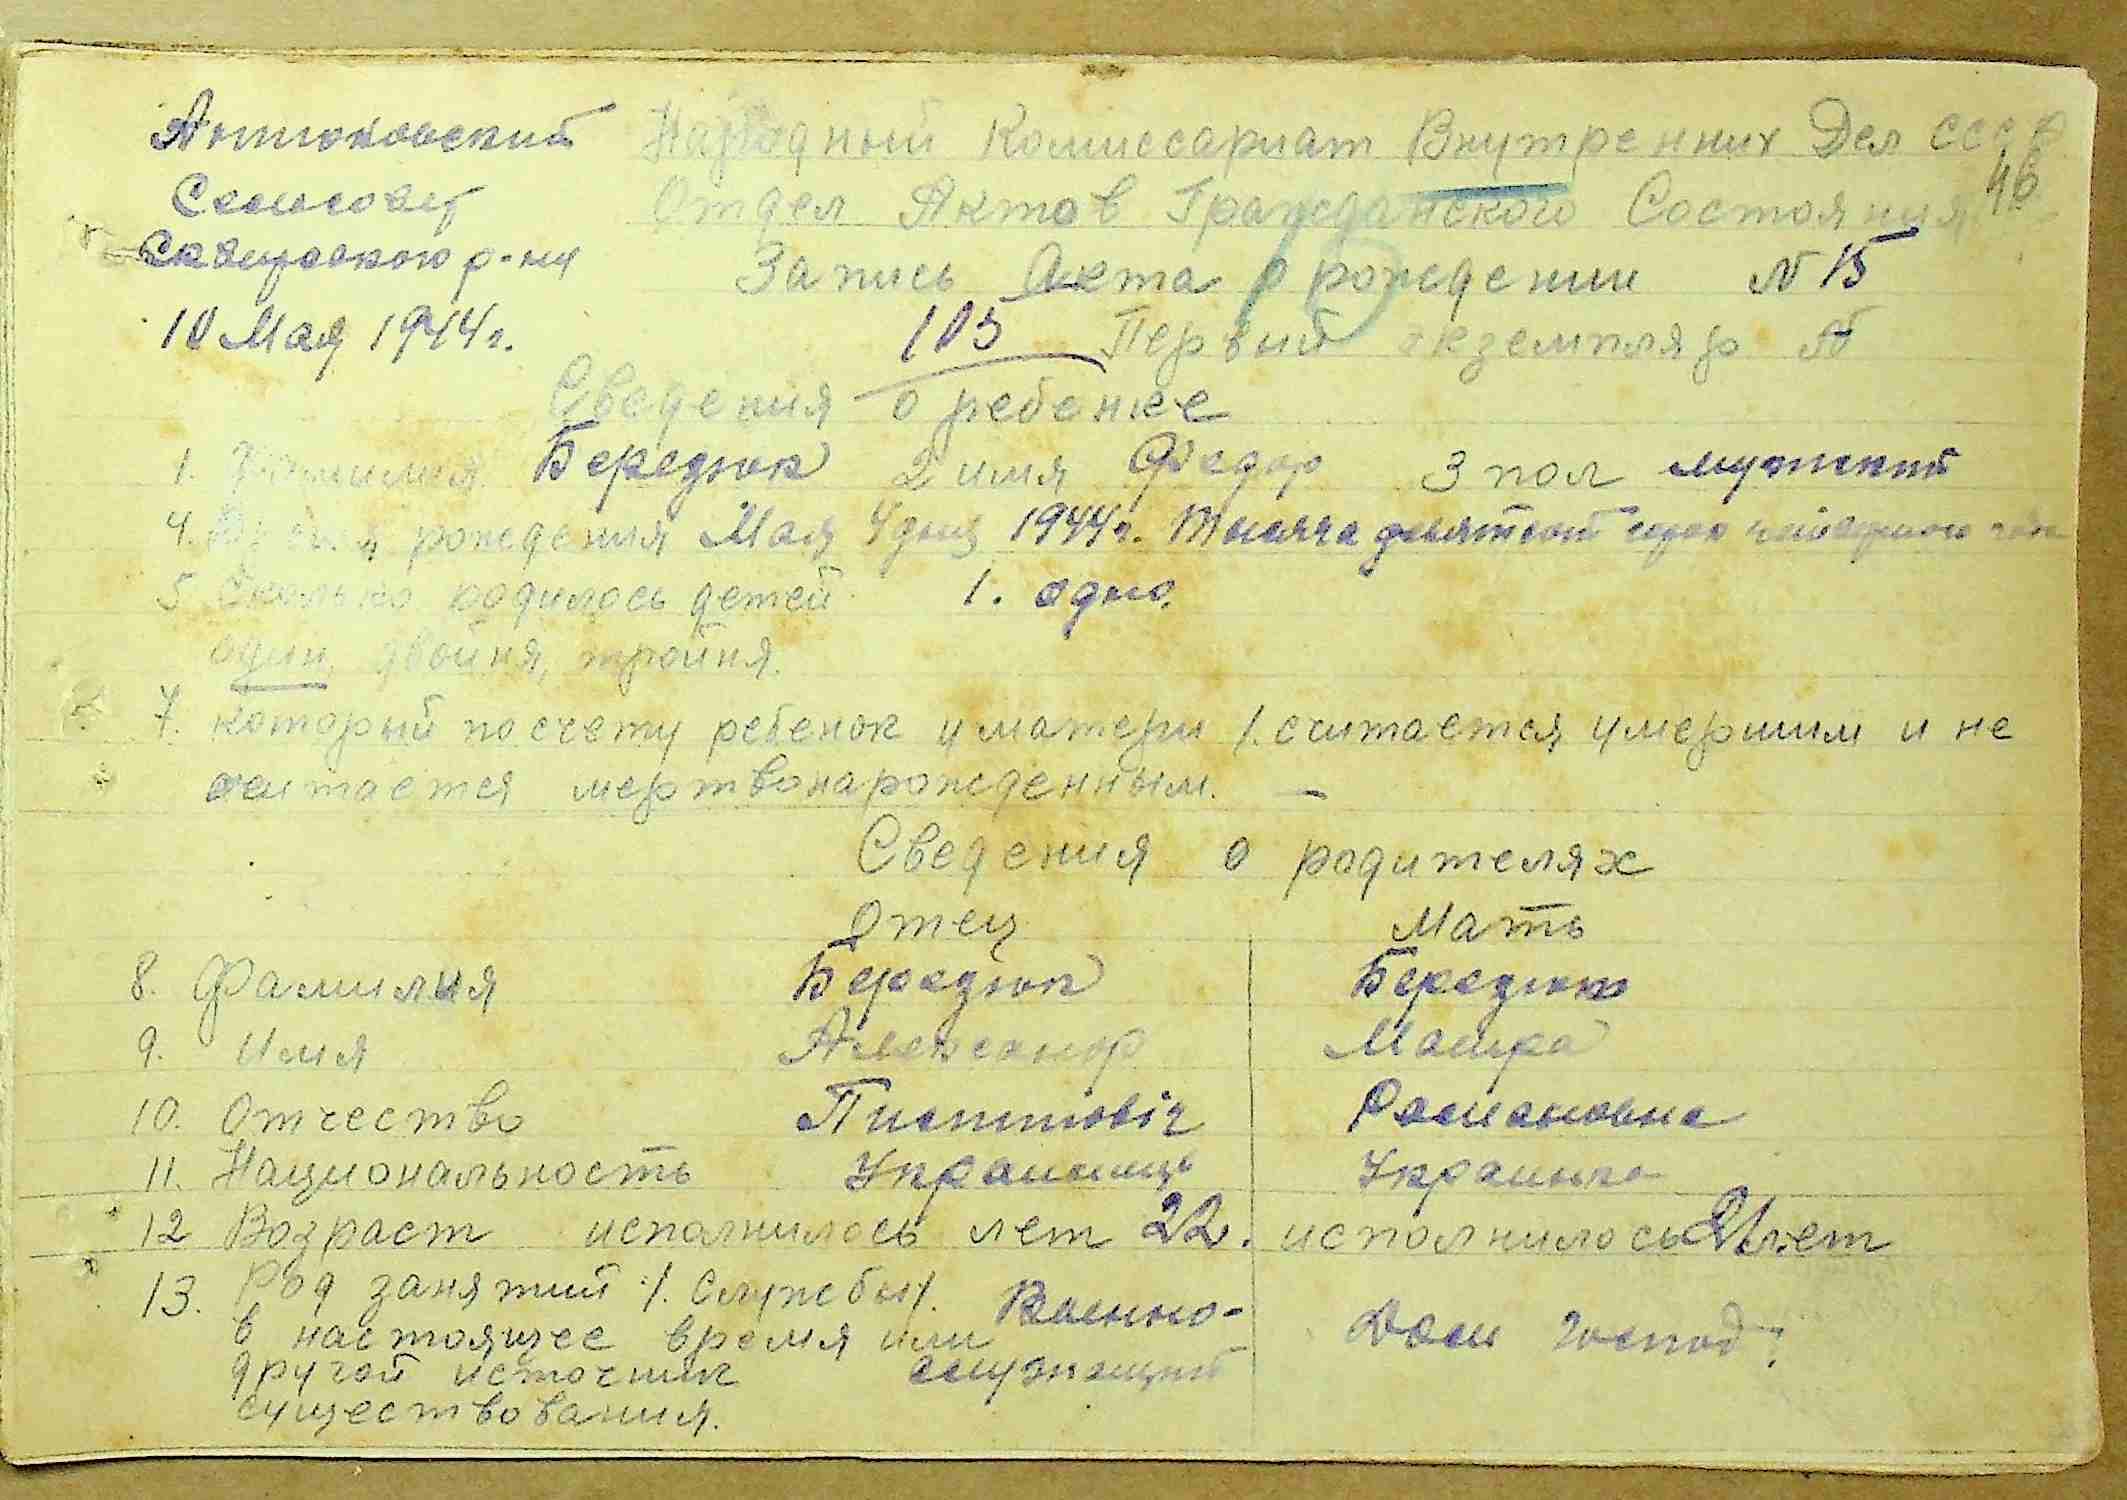 Антоновский
Сельсовет
Сквирского р-ну
10 Мая 1944 г.
Народный Комиссариат Внутренних Дел СССР
46
Отдел Актов Гражданского Состояния
Запись Акта о рождении № 15
105 Первый экземпляр №
Сведения о ребенке
1. Фамилия Бередюк 2 имя Федор 3 пол мужский
4. Время рождения Мая 4 дня 1944 г. Тысяча девятсот сорок
5 Сколько родилось детей 1. одно.
один, двойня, тройня.
7. который по счету ребенок у матери 1. считается умершим и не
считается мертвонарожденным. —
Сведения о родителях
Отец Мать
8. Фамилия Бередюк Бередюк
9. Имя Александр
10. Отчество Романовна
11. Национальность Украинець Украинка
12 Возраст исполнилось лет 22. исполнилось 21 лет
13. Род занятий /. Службы/. Военно-
в настоящее время или Дом господ.
другой источник служащий
существования.